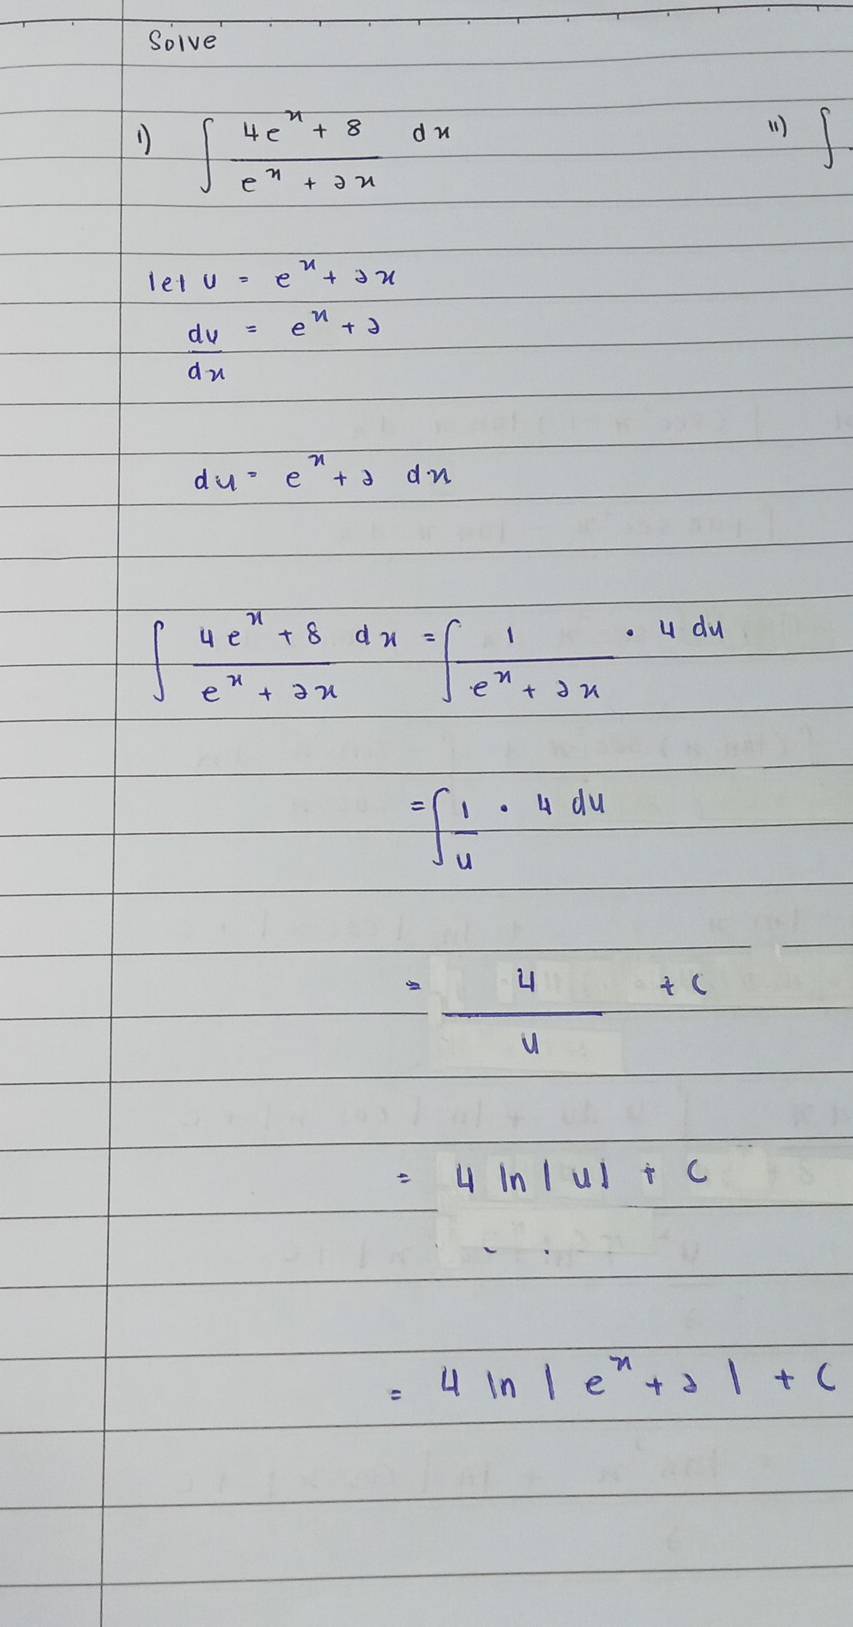 Solve
i) ∫ (4e^x + 8)/(e^x + 2x) dx ii) ∫
let u = e^x + 2x
du/dx = e^x + 2
du = e^x + 2 dx
∫ (4e^x + 8)/(e^x + 2x) dx = ∫ 1/(e^x + 2x) · 4 du
= ∫ 1/u · 4 du
= 4/u + C
= 4 ln |u| + C
= 4 ln | e^x + 2 | + C